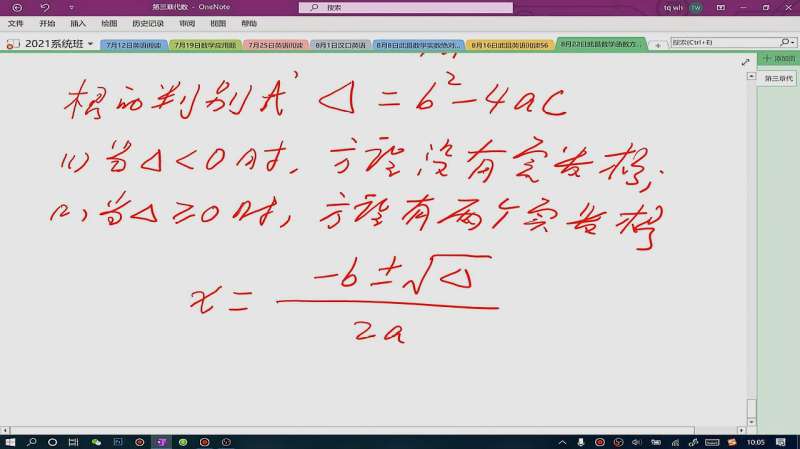 第三章代数 - OneNote
搜索
tq wh
TW
文件 开始 插入 绘图 历史记录 审阅 视图 帮助
2021系统班
7月12日英语阅读
7月19日数学应用题
7月25日英语阅读
8月1日汉口英语
8月8日武昌数学实数绝对...
8月16武昌英语阅读56
8月22日武昌数学函数方...
搜索(Ctrl+E)
添加页
第三章代
根的判别式 △=b²-4ac
(1) 当△<0时, 方程没有实数根;
(2) 当△≥0时, 方程有两个实数根
x = (-b±√△)/2a
10:05